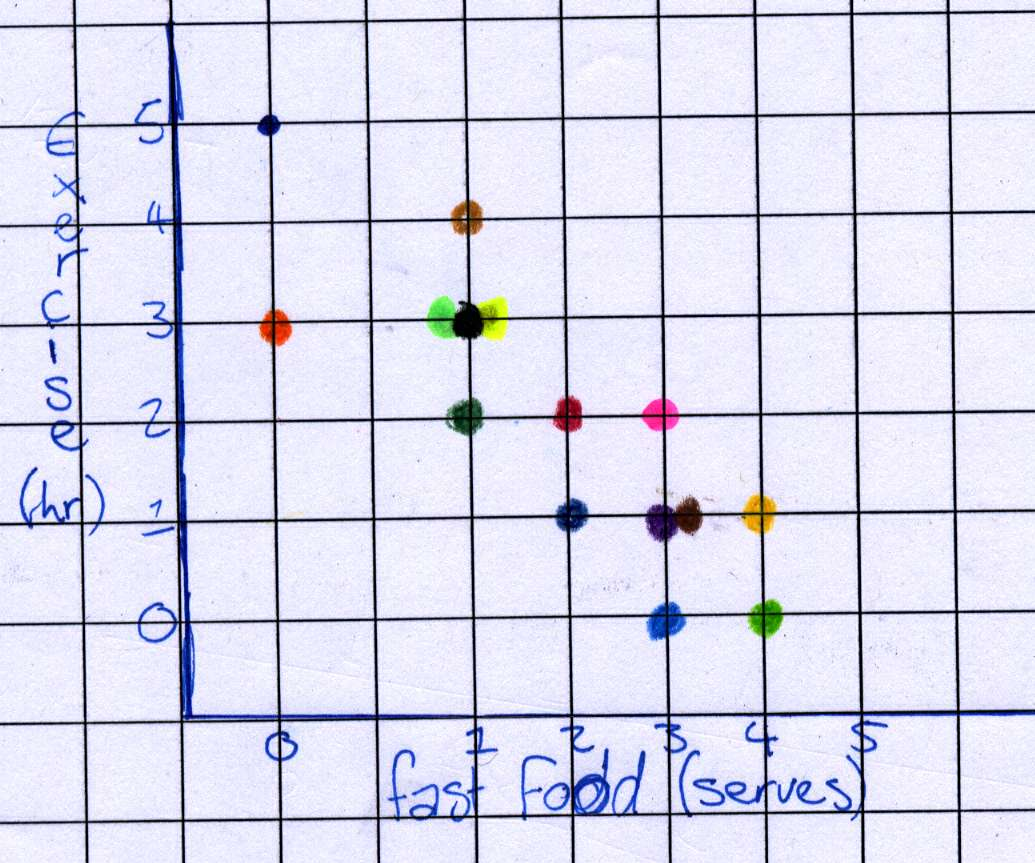 Exercise
(hr)
5
4
3
2
1
0
0 1 2 3 4 5
fast Food (serves)